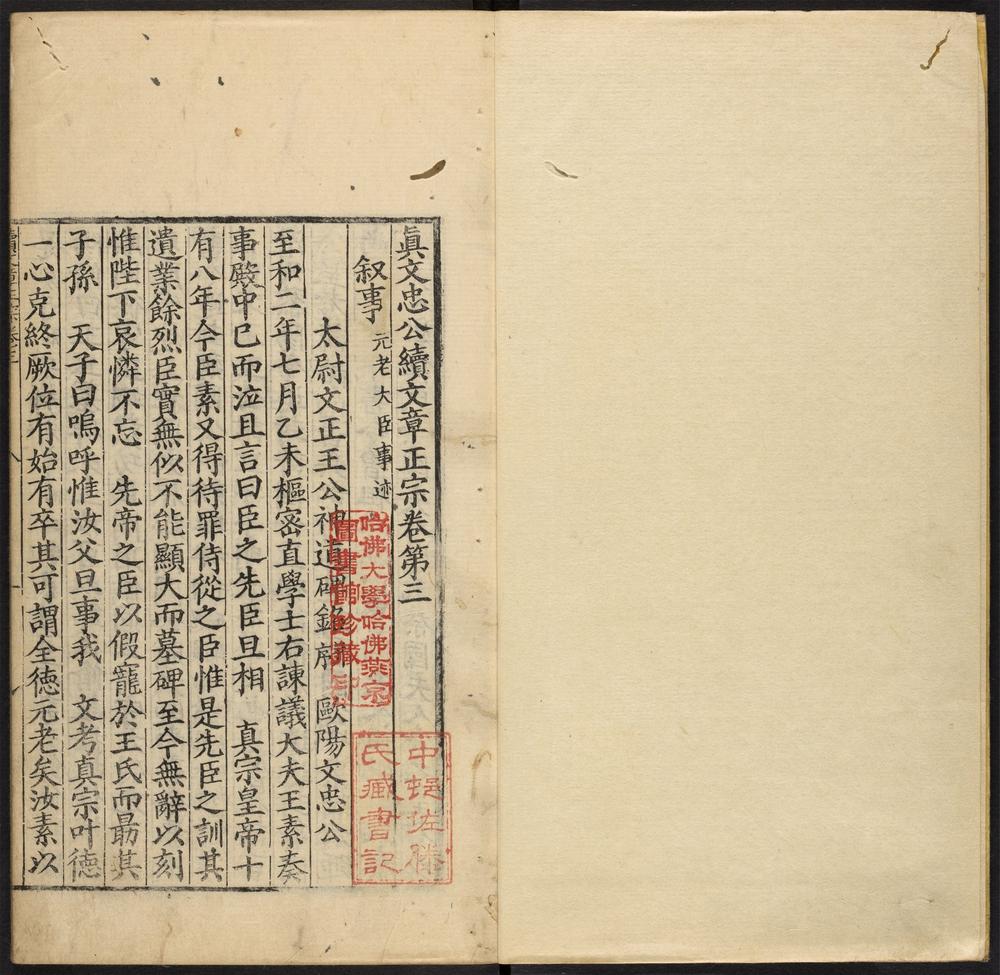 真文忠公續文章正宗卷第三
叙事 元老大臣事迹
太尉文正王公神道碑銘序 歐陽文忠公
至和二年七月乙未樞密直學士右諫議大夫王素奏
事殿中已而泣且言曰臣之先臣旦相 真宗皇帝十
有八年今臣素又得待罪侍從之臣惟是先臣之訓其
遺業餘烈臣實無似不能顯大而墓碑至今無辭以刻
惟陛下哀憐不忘 先帝之臣以假寵於王氏而朂其
子孫 天子曰嗚呼惟汝父旦事我 文考真宗叶德
一心克終厥位有始有卒其可謂全德元老矣汝素以
哈佛大學哈佛燕京
圖書館珍藏印
中挹佐藤
氏藏書記